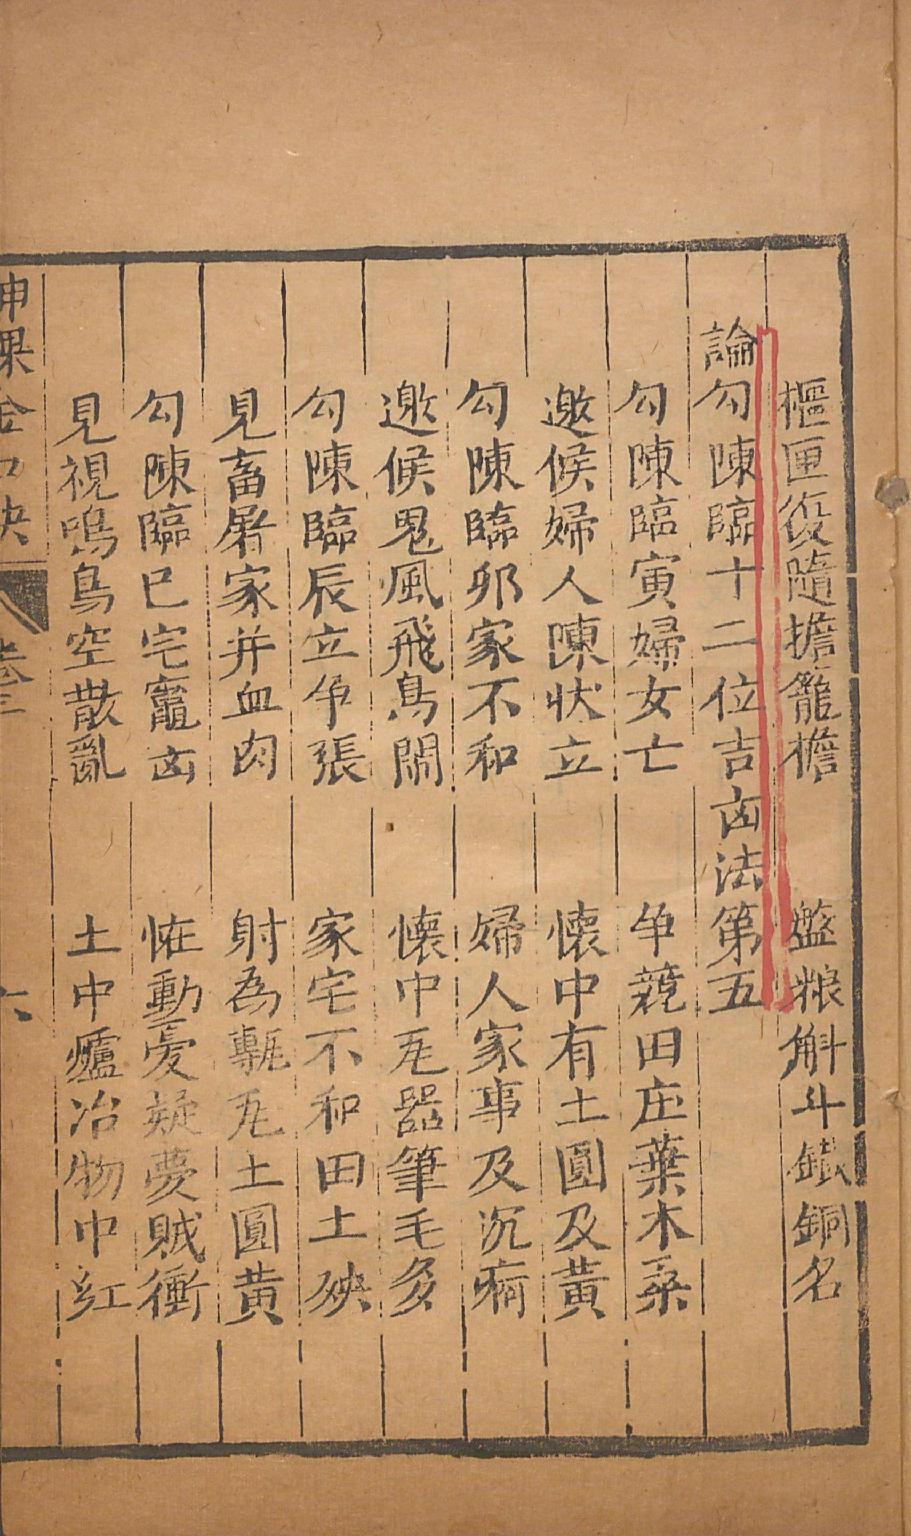 樞匣復隨擔籠檐　盤粮斛斗鐵銅名
論勾陳臨十二位吉凶法第五
勾陳臨寅婦女亡　争競田庄葉木桑
邀候婦人陳状立　懷中有土圓及黃
勾陳臨卯家不和　婦人家事及沉痾
邀候鬼風飛鳥閙　懷中瓦器筆毛多
勾陳臨辰立争張　家宅不和田土殃
見畜屠家并血肉　射為甎瓦土圓黄
勾陳臨巳宅竈凶　怪動憂疑夢賊衝
見視鳴鳥空散亂　土中爐冶物中紅
神課金口訣　卷三　六